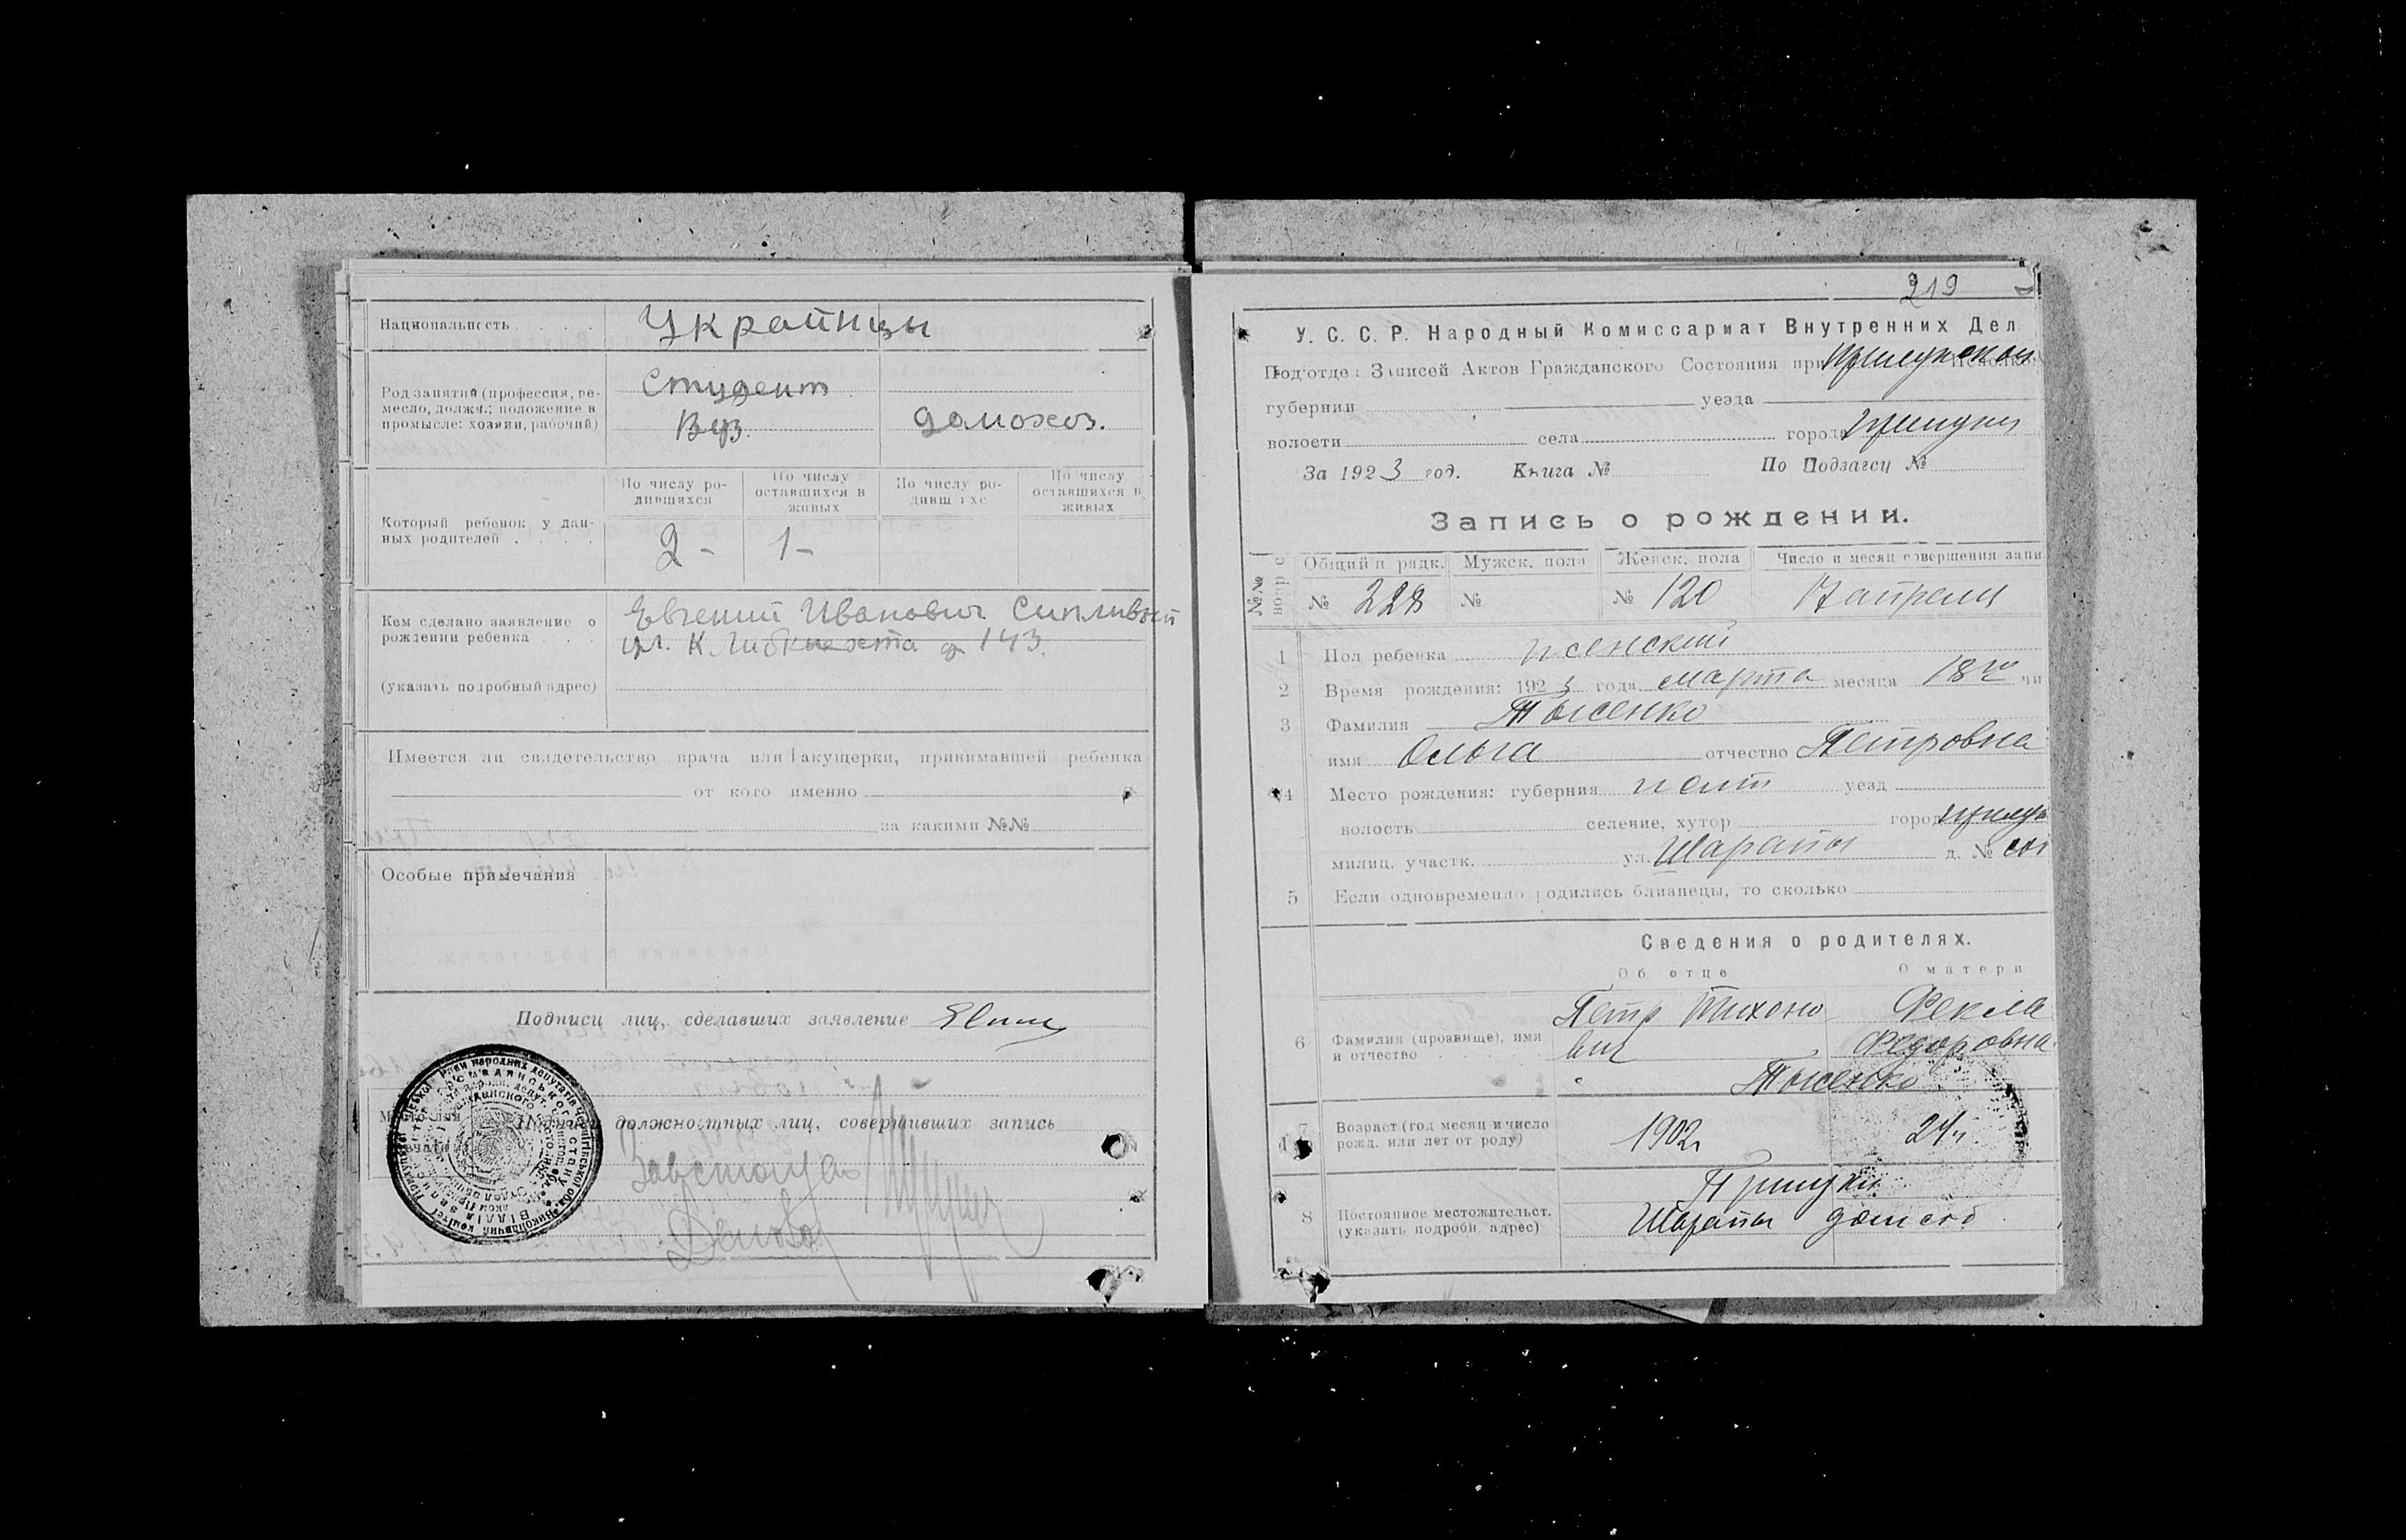 Национальность . . . . Украинцы
Род занятий (профессия, ре-
месло, должн.; положение в
промысле: хозяин, рабочий)
Студент
Вуз. домохоз.
Который ребенок у дан-
ных родителей . . . .
По числу ро-
дившихся
По числу
оставшихся в
живых
По числу ро-
дивш хс
По числу
оставшихся в
живых
2 - 1 -
Кем сделано заявление о
рождении ребенка . . .
(указать подробный адрес)
Евгений Иванович Сипливый
ул. К Либкнехта д 143.
Имеется ли свидетельство врача или акушерки, принимавшей ребенка
от кого именно
за какими №№
Особые примечания
Подписи лиц, сделавших заявление
должностных лиц, совершивших запись
219
У. С. С. Р. Народный Комиссариат Внутренних Дел
Подотдел Записей Актов Гражданского Состояния при Прилукском
губернии уезда
волости села города Прилуки
За 1923 год. Книга № По Подзагсу №
Запись о рождении.
Общий п рядк. Мужск. пола Женск. пола Число и месяц совершения запи
№ 228 № № 120 17 апреля
1 Пол ребенка женский
2 Время рождения: 1923 года марта месяца 18го чи
3 Фамилия Тысенко
имя Ольга отчество Петровна
4 Место рождения: губерния уезд
волость селение, хутор город Прилуки
милиц. участк. ул. Шарапы д. № соб
5 Если одновременно родились близнецы, то сколько
Сведения о родителях.
Об отце О матери
6 Фамилия (прозвище), имя
и отчество
Петр Тихоно
вич
Фекла
Федоровна
Тысенко
7 Возраст (год месяц и число
рожд. или лет от роду)
1902 24
8 Постоянное местожительст.
(указать подробн. адрес)
Прилуки
Шарапы дом соб